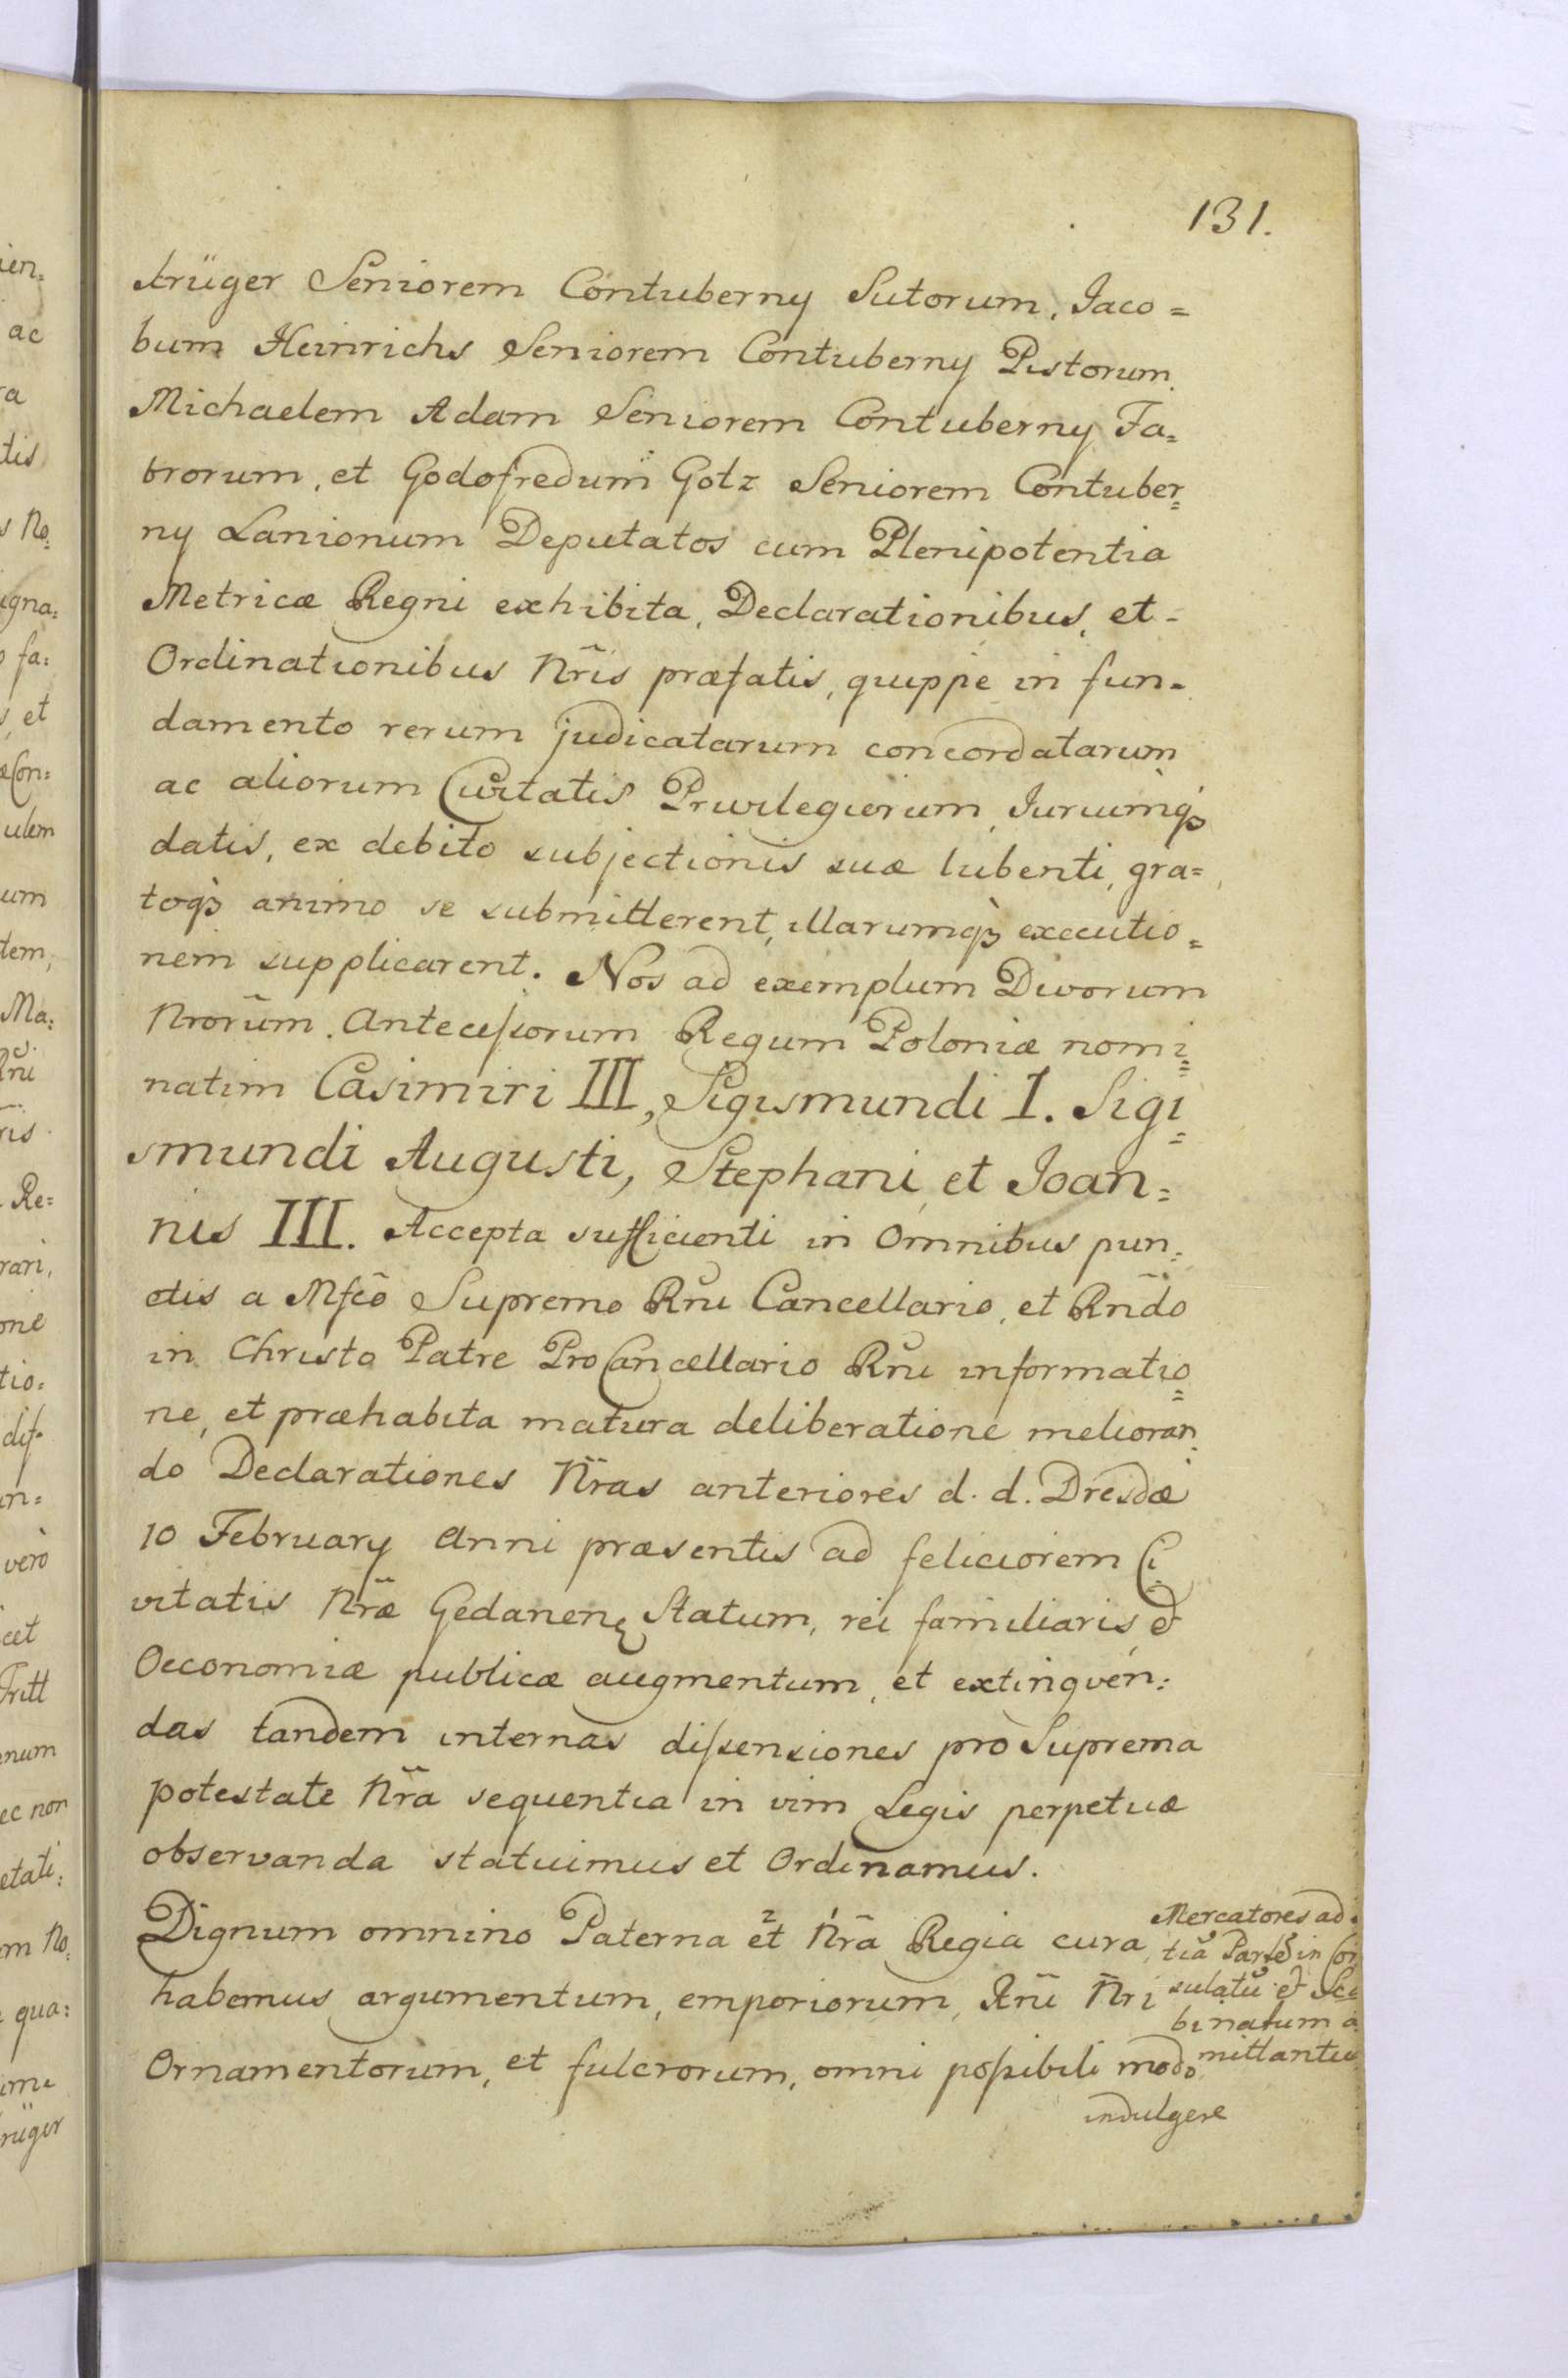 131.
Krüger Seniorem Contuberny Sutorum, Jaco=
bum Heinrichs Seniorem Contuberny Pistorum
Michaelem Adam Seniorem Contuberny Fa=
brorum, et Godofredum Gotz Seniorem Contuber=
ny Lanionum Deputatos cum Plenipotentia
Metricæ Regni exhibita, Declarationibus, et-
Ordinationibus Nr̃is præfatis, quippe in fun-
damento rerum judicatarum concordatarum
ac aliorum Civitatis Privilegiorum, Juriumqꝫ
datis, ex debito subjectionis suæ lubenti, gra=
toqꝫ animo se submitterent, illarumqꝫ executio=
nem supplicarent. Nos ad exemplum Divorum
Nrorũm Antecessorum Regum Poloniæ nomi=
natim Casimiri III, Sigismundi I. Sigi=
smundi Augusti, Stephani, et Joan=
nis III. Accepta sufficienti in Omnibus pun=
ctis a Mfcõ Supremo Rñi Cancellario, et Rñdo
in Christo Patre ProCancellario Rñi informatio=
ne, et præhabita matura deliberatione melioran=
do Declarationes Nr̃as anteriores d. d. Dresdæ
10 February Anni præsentis ad feliciorem Ci=
vitatis Nr̃æ Gedanenȩ Statum, rei familiaris, &
Oeconomiæ publicæ augmentum, et extingven:
das tandem internas dissensiones pro Suprema
potestate Nr̃a sequentia in vim Legis perpetuæ
observanda statuimus et Ordinamus.
Dignum omnino Paterna 2 et 1 Nr̃a Regia cura
habemus argumentum, emporiorum, Rñi Nr̃i
Ornamentorum, et fulcrorum, omni possibili modo
indulgere
Mercatores ad
tiã Partẽ in Con
sulatũ & Sca
binatum a
mittantur
ien=
ac
ra
tis
s No=
igna=
o fa:
s, et
æCon=
ulem
um
tem,
Ma:
Rñi
ris
Re=
rari,
one
tio:
dif=
in=
verò
cet
Tritt
num
ec non
etati:
m No:
qua:
ime
rüger